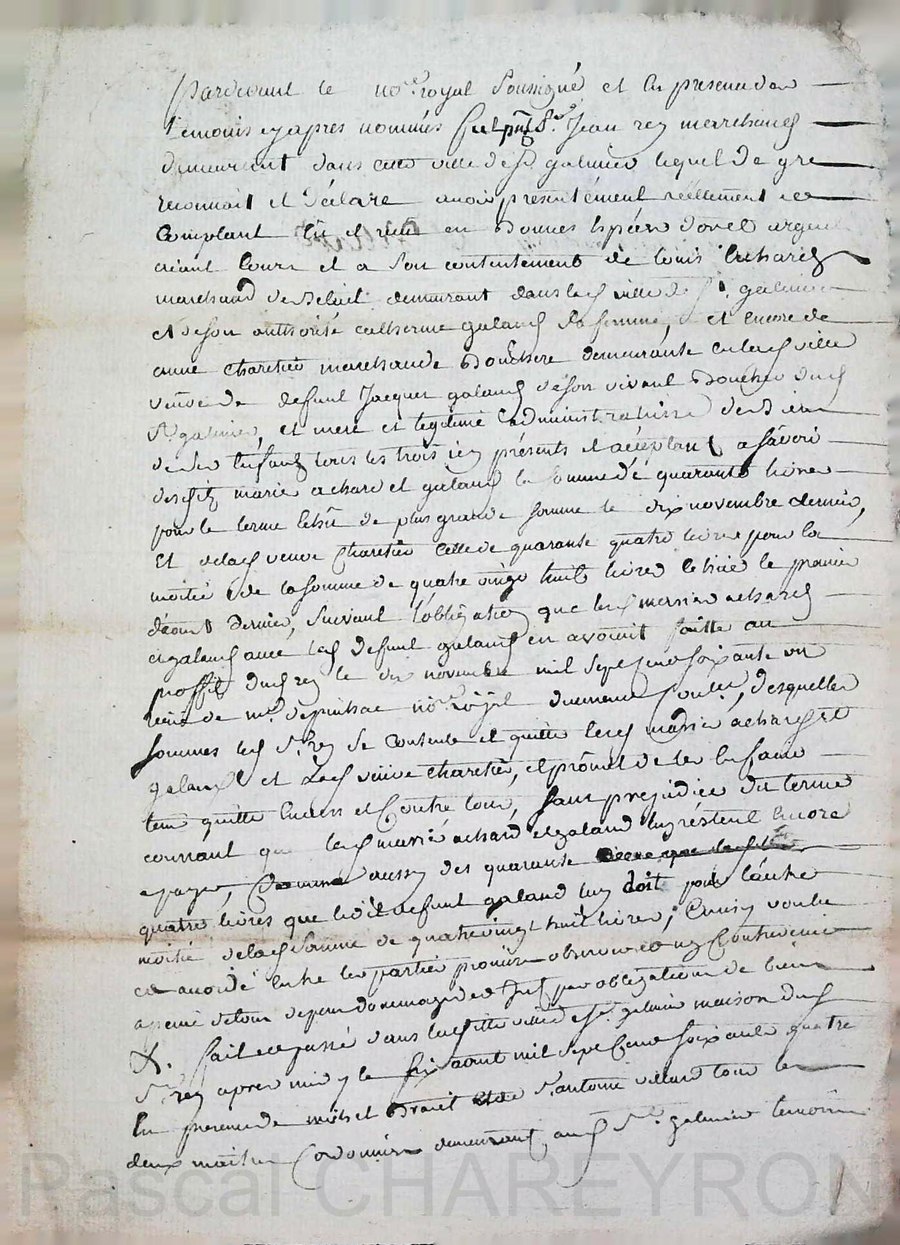 Pardevant le no.re royal soussigné et en presence des
temoins cy apres nommés fut pnt S.r Jean rey marchand
demeurant dans cette ville de S.t galmier lequel de gre
reconnait et déclare avoir presentement réellement et
Comptant eu et reçu en Bonnes Espèces d'or et argent
aiant Cours et a son contentement de Louis achard
marchand de Betail demeurant dans lad ville de S.t galmier
et de son authorité catherine galand sa femme, et encore de
anne Charetier marchande Bouchere demeurante en lad ville
veuve de defunt Jacques galand de son vivant Boucher dud
S.t galmier, et mere et legitime administrateresse des Biens
de ses Enfants tous les trois icy présents et acceptant a sávoir
desd marié achard et galand la somme dé quarante livres
pour le terme Echû de plus grande somme le dix novembre dernier,
Et de lad veuve Charetier Celle de quarante quatre livres pour la
moitié de la somme de quatre vingt huit livres echüe le premier
d'aoust dernier, suivant l'obligation que lesd mariés achard
et galand avec led defunt galand en avoient faitte au
proffit dud rey le dix novembre mil sept cent soixante un
reçue de m.e depinhac no.re royal duement Controlé, desquelles
sommes led S.r rey se Contente et quitte lesd mariés achard et
galand et lad veuve Charetier, et promet de les en faire
tenir quitte Envers et Contre tous, sans prejudice du terme
courrant que lesd marié achard et galand luy réstent Encore
a payer, Comme aussy des quarante
quatre livres que led defunt galand luy doit pour l'autre
moitié de lad somme de quatre vingt huit livres; Car ainsy voulu
et accordé Entre les parties promis observer et ny Contrevenir
a peine de tous depens dommages et Int par obligation de biens
&. fait et passé dans lad ville de S.t galmier maison dud
S.r rey apres midy le six aoust mil sept Cent soixante quatre
En presence de michel et de S.t antoine villard tous les
deux maitres Cordonniers demeurants aud S.t galmier temoins
Pascal CHAREYRON